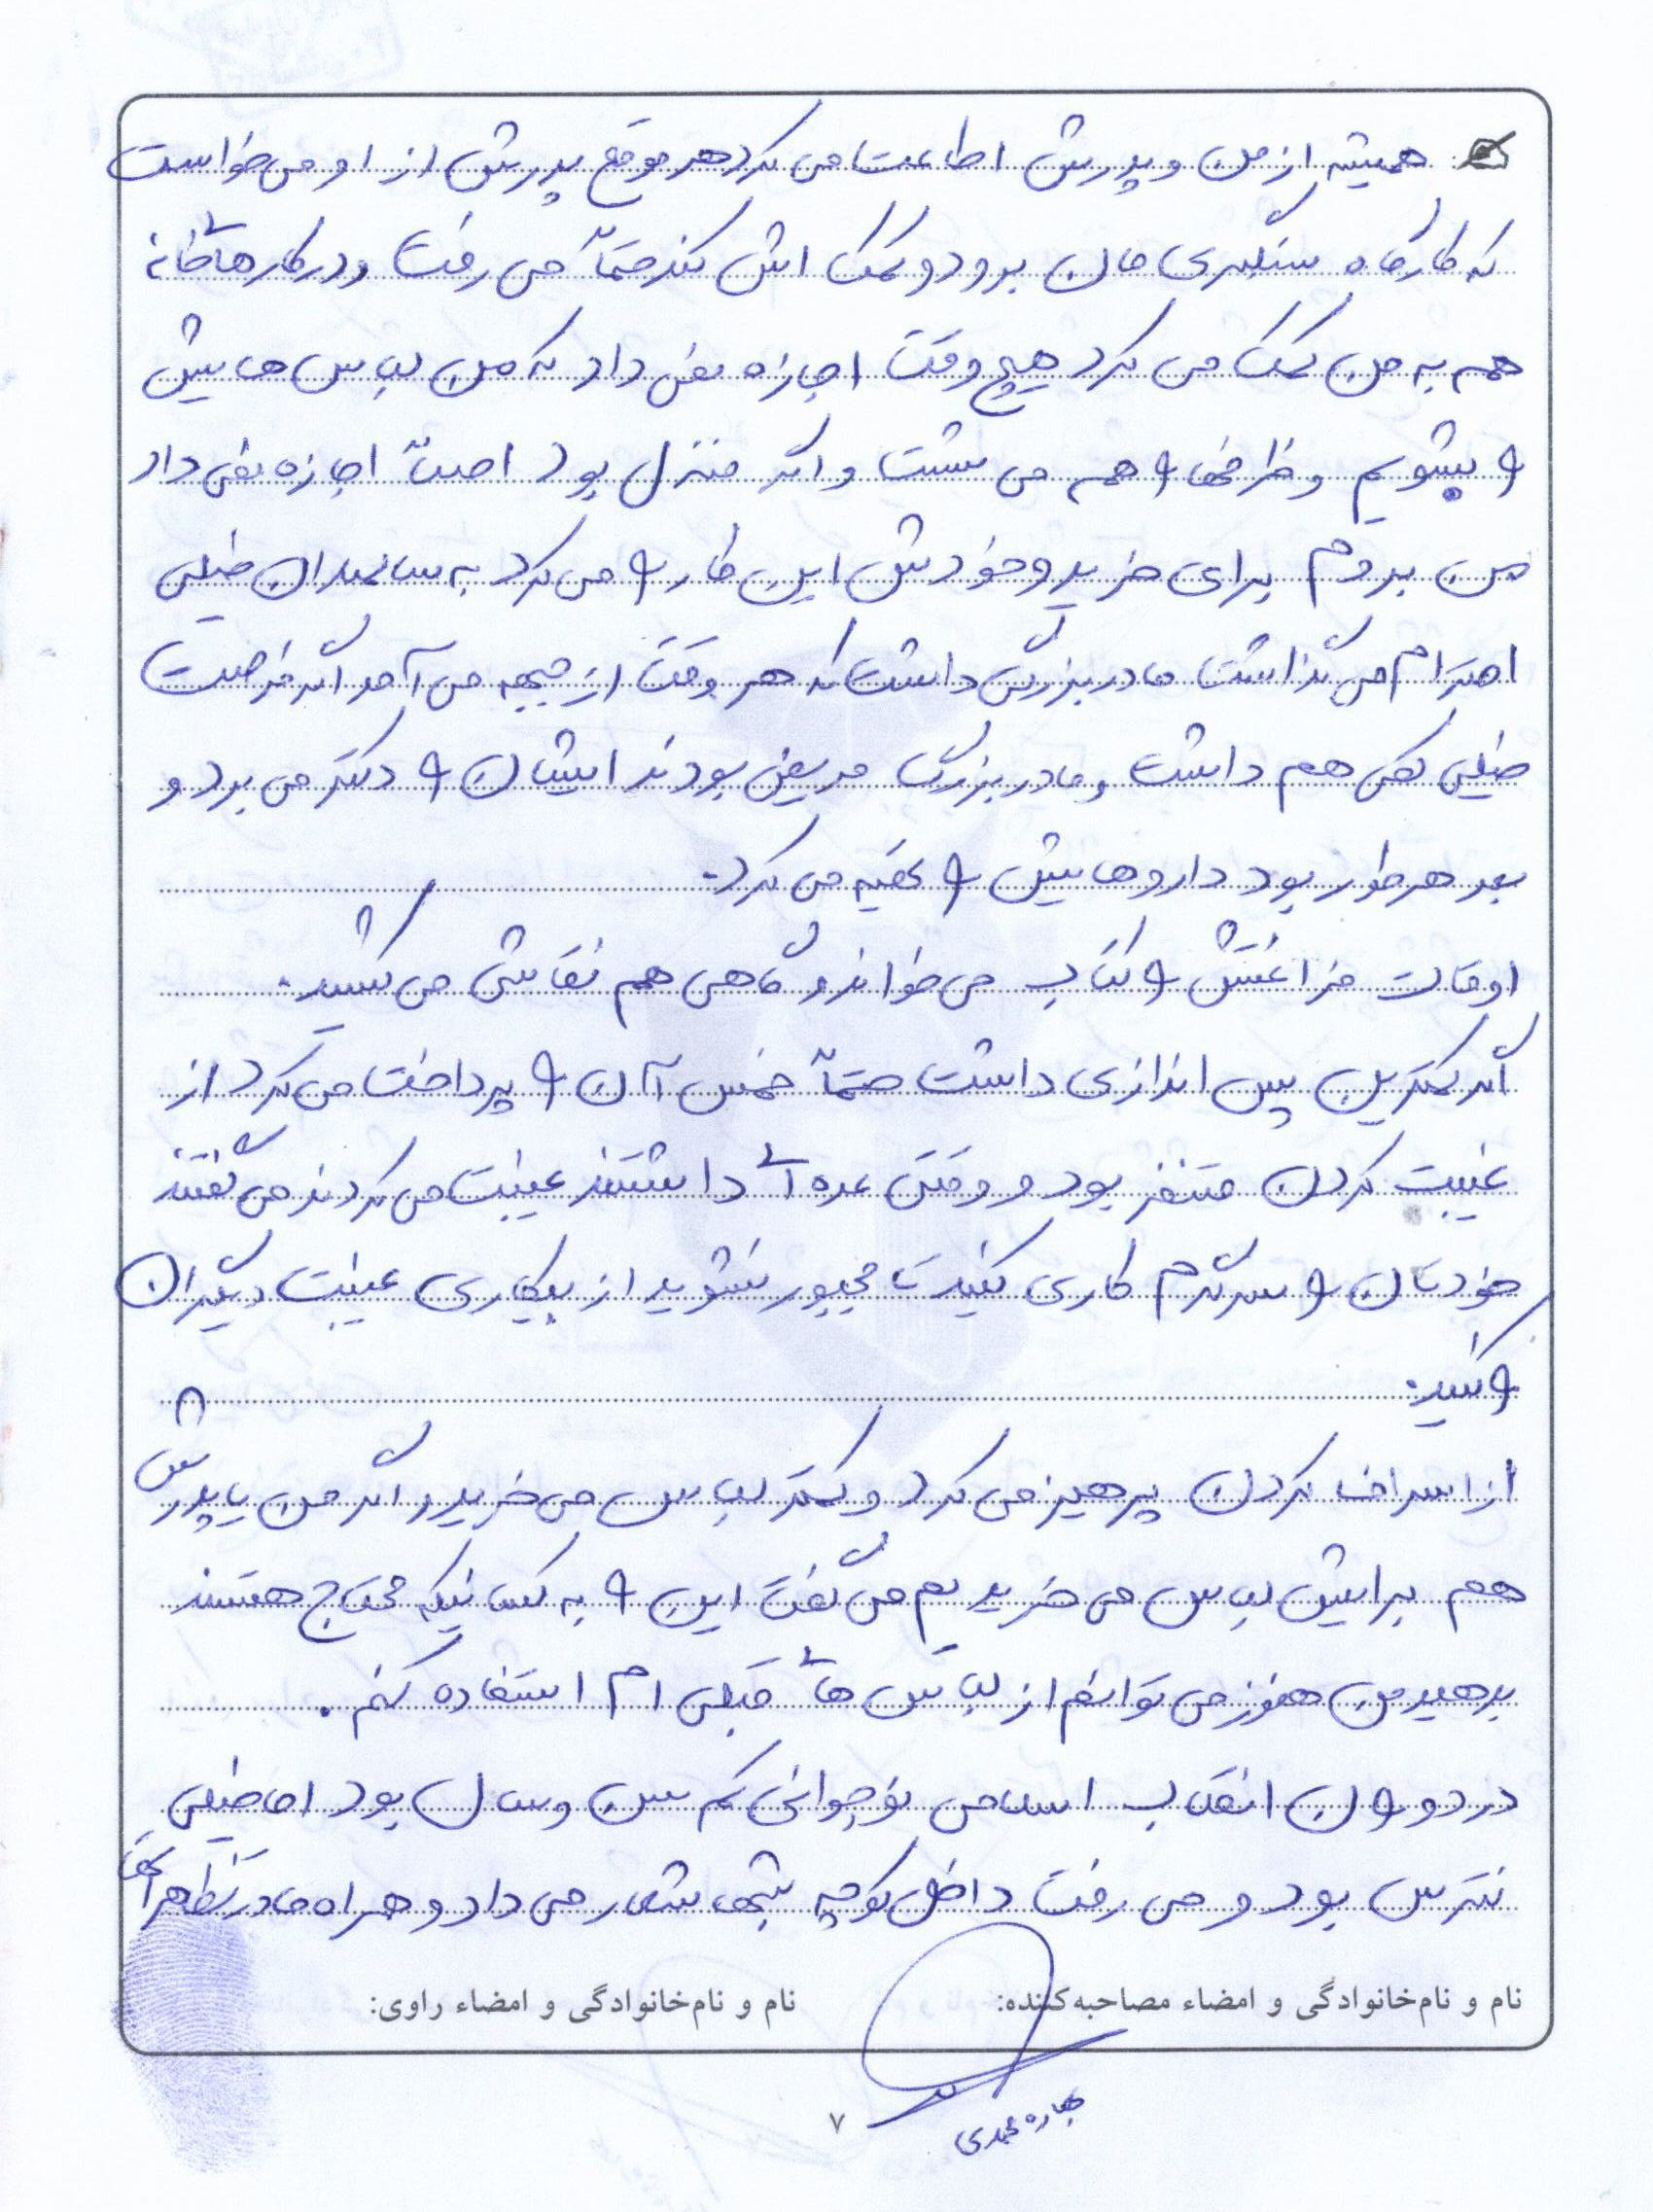 همیشه از من و پدرش اطاعت می کرد هر موقع پدرش از او می خواست
که کارگاه سنگبری مان برود و کمک اش کند حتماً می رفت و در کارهای خانه
هم به من کمک می کرد هیچ وقت اجازه نمی داد که من لباس هایش
را بشویم و ظرفها را هم می شست و اگر منزل بود اصلاً اجازه نمی داد
من بروم برای خرید و خودش این کار را می کرد به سالمندان خیلی
احترام می گذاشت مادربزرگی داشت که هر وقت از جبهه می آمد اگر فرصت
خیلی کمی هم داشت و مادربزرگ مریض بودند ایشان را دکتر می برد و
بعد هر طور بود داروهایش را تهیه می کرد.
اوقات فراغتش را کتاب می خواند و گاهی هم نقاشی می کشید.
اگر کمترین پس اندازی داشت حتماً خمس آن را پرداخت می کرد از
غیبت کردن متنفر بود و وقتی عده ای داشتند غیبت می کردند می گفتند
خودتان را سرگرم کاری کنید تا مجبور نشوید از بیکاری غیبت دیگران
را کنید.
از اسراف کردن پرهیز می کرد و کمتر لباس می خرید و اگر من یا پدرش
هم برایش لباس می خریدیم می گفت این را به کسانیکه محتاج هستند
بدهید من هنوز می توانم از لباس های قبلی ام استفاده کنم.
در دوران انقلاب اسلامی نوجوانی کم سن و سال بود اما خیلی
نترس بود و می رفت داخل کوچه شبها شعار می داد و همراه مادر تظاهراتها
نام و نام‌خانوادگی و امضاء مصاحبه‌کننده: نام و نام‌خانوادگی و امضاء راوی:
بهاره محمدی
۷